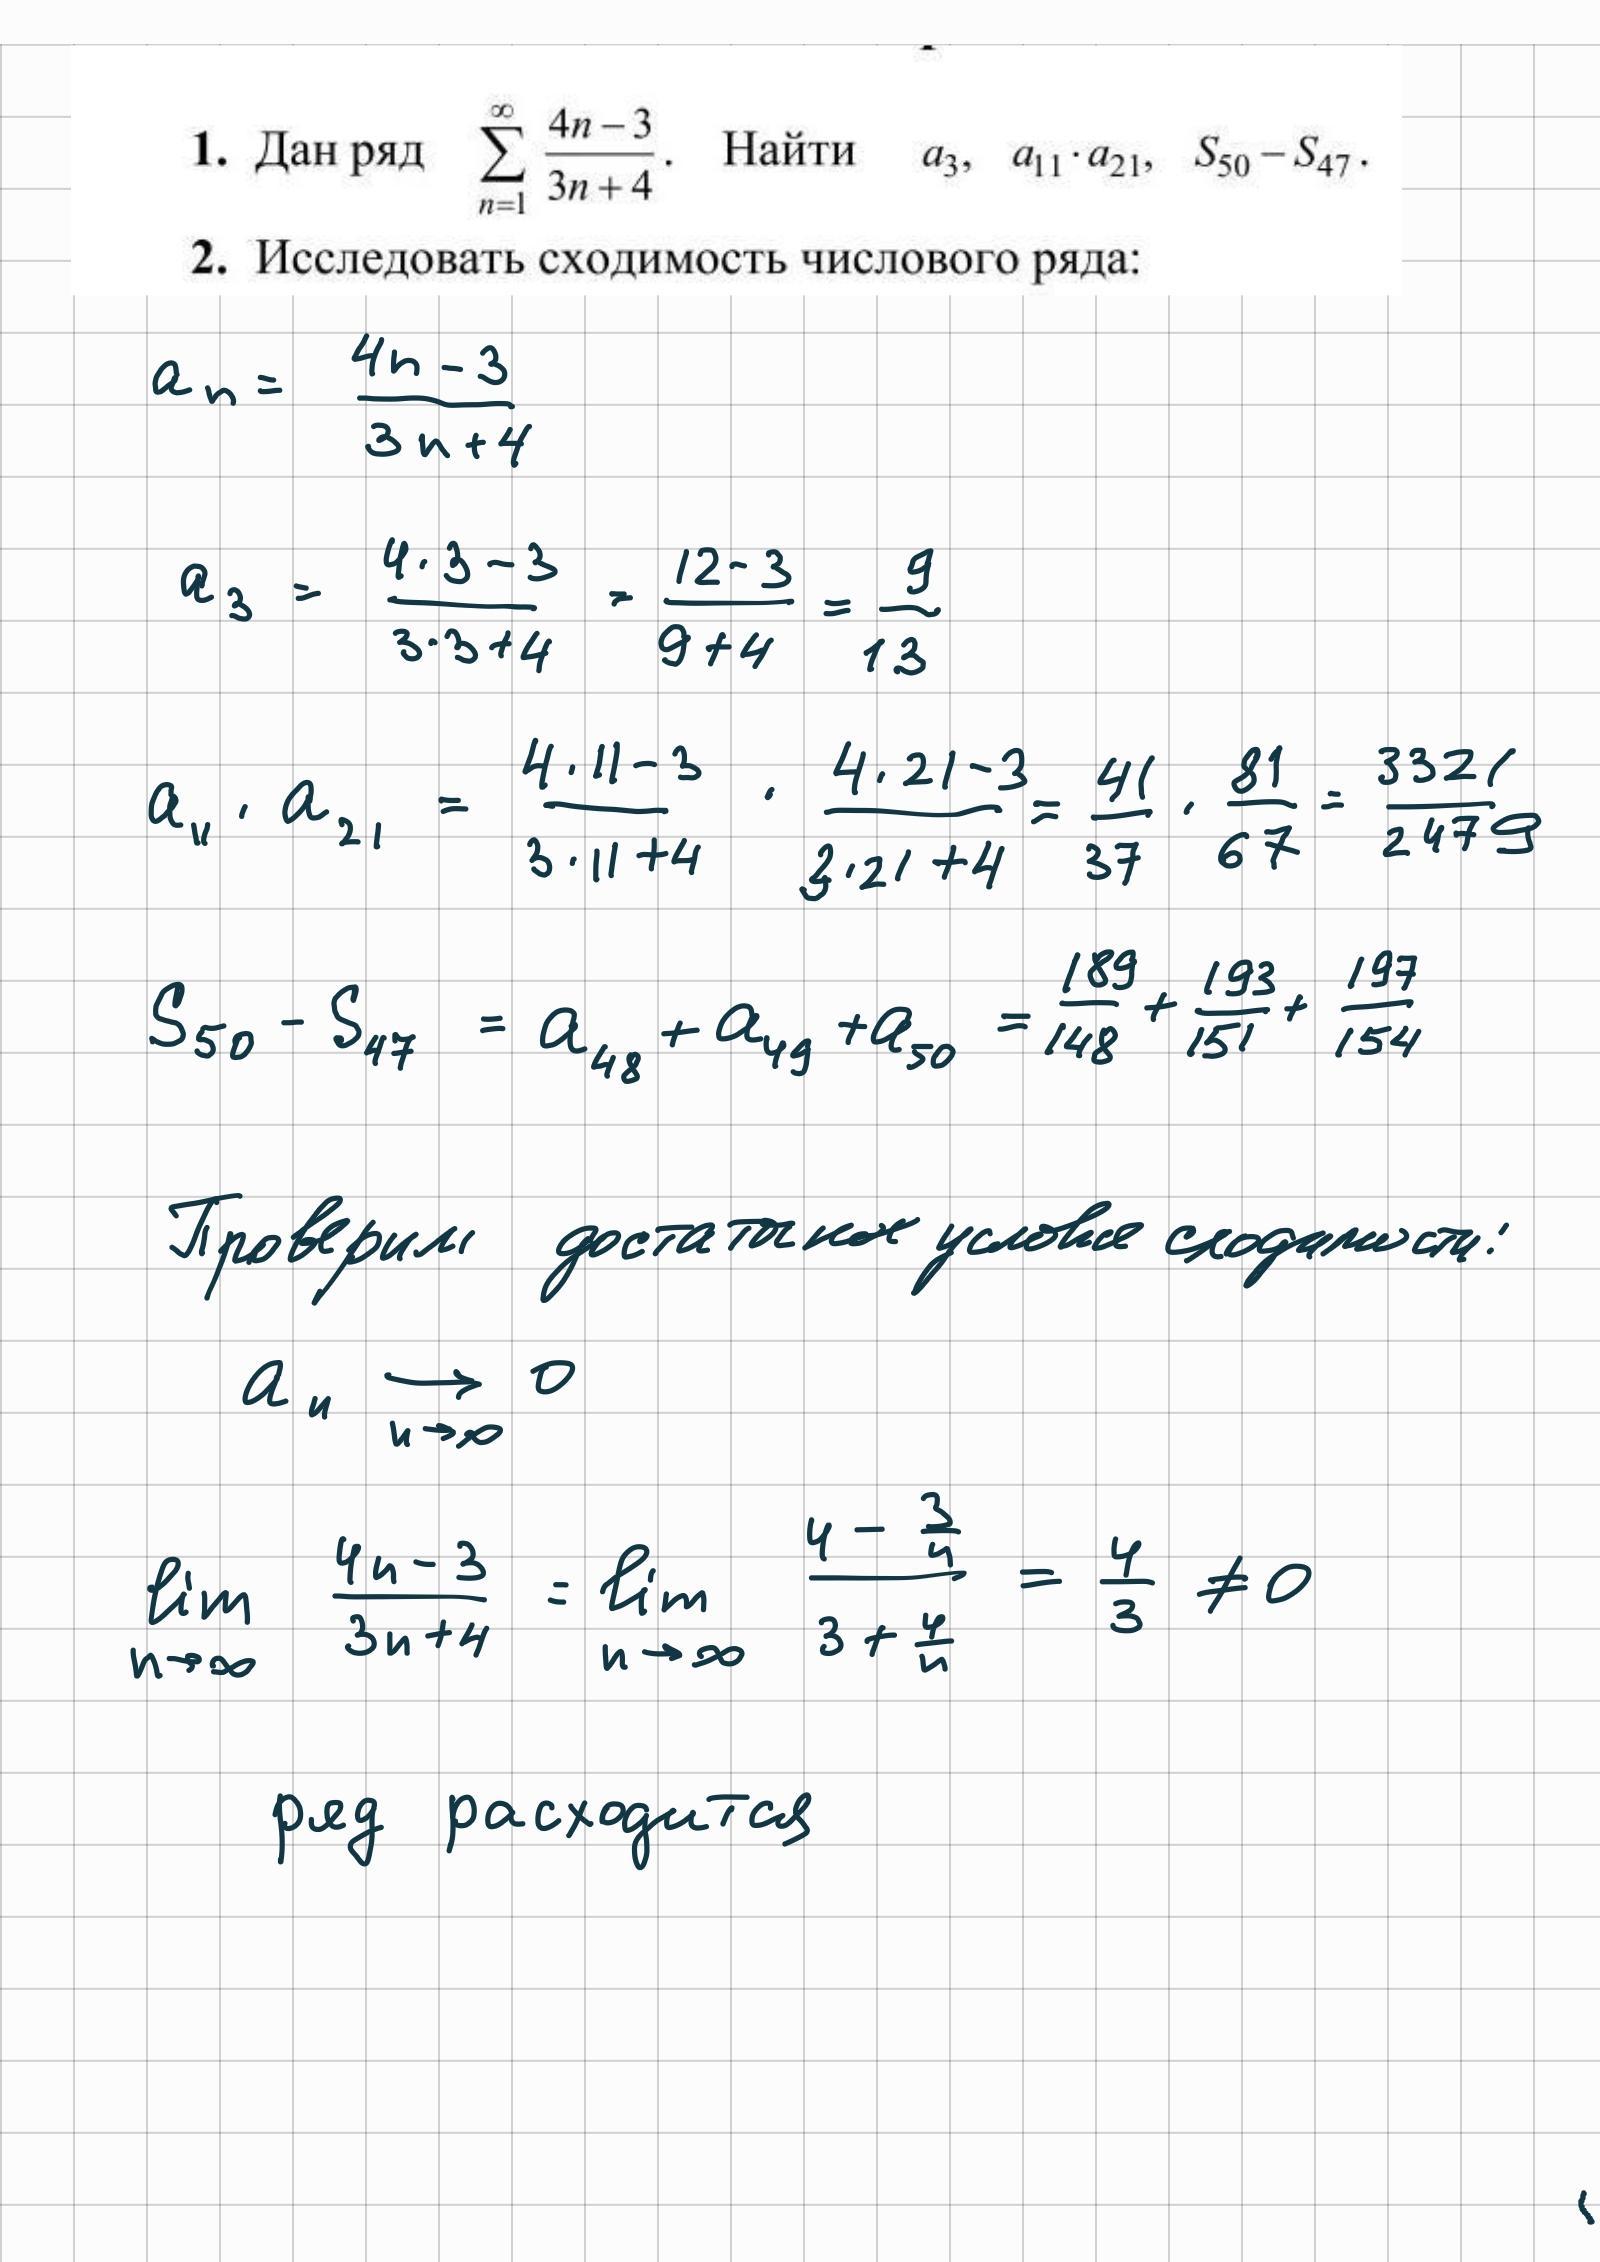 1. Дан ряд ∑_{n=1}^{∞} (4n − 3)/(3n + 4). Найти a₃, a₁₁ · a₂₁, S₅₀ − S₄₇.
2. Исследовать сходимость числового ряда:
aₙ = (4n − 3)/(3n + 4)
a₃ = (4·3 − 3)/(3·3 + 4) = (12 − 3)/(9 + 4) = 9/13
a₁₁ · a₂₁ = (4·11 − 3)/(3·11 + 4) · (4·21 − 3)/(3·21 + 4) = 41/37 · 81/67 = 3321/2479
S₅₀ − S₄₇ = a₄₈ + a₄₉ + a₅₀ = 189/148 + 193/151 + 197/154
Проверим достаточное условие сходимости:
aₙ →_{n→∞} 0
lim_{n→∞} (4n − 3)/(3n + 4) = lim_{n→∞} (4 − 3/n)/(3 + 4/n) = 4/3 ≠ 0
ряд расходится